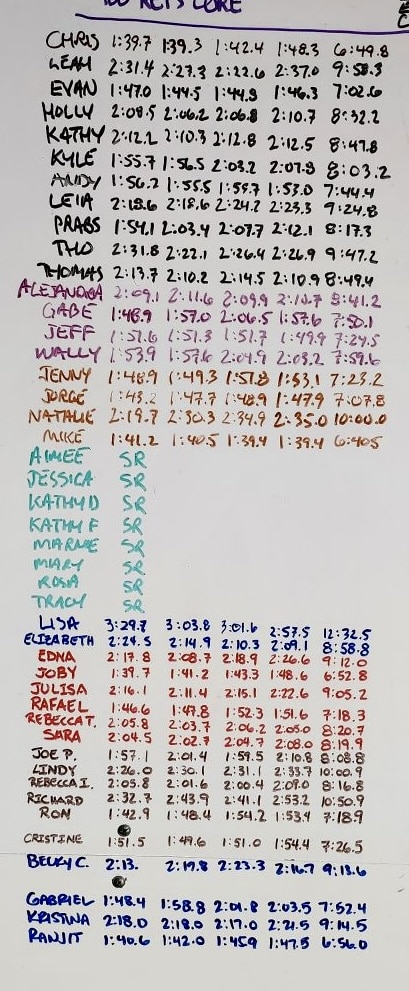 SCORE
CHRIS 1:39.7 1:39.3 1:42.4 1:48.3 6:49.8
LEAH 2:31.4 2:27.3 2:22.6 2:37.0 9:58.3
EVAN 1:47.0 1:44.5 1:44.8 1:46.3 7:02.6
HOLLY 2:08.5 2:06.2 2:06.8 2:10.7 8:32.2
KATHY 2:12.2 2:10.3 2:12.8 2:12.5 8:47.8
KYLE 1:55.7 1:56.5 2:03.2 2:07.8 8:03.2
ANDY 1:56.2 1:55.5 1:59.7 1:53.0 7:44.4
LEIA 2:18.6 2:18.6 2:24.2 2:23.3 9:24.8
PRABS 1:54.1 2:03.4 2:07.7 2:12.1 8:17.3
THO 2:31.8 2:22.1 2:26.4 2:26.9 9:47.2
THOMAS 2:13.7 2:10.2 2:14.5 2:10.9 8:49.4
ALEJANDRA 2:09.1 2:11.6 2:09.9 2:10.7 8:41.2
GABE 1:48.9 1:57.0 2:06.5 1:57.6 7:50.1
JEFF 1:51.6 1:51.3 1:51.7 1:49.9 7:24.5
WALLY 1:53.9 1:57.6 2:04.9 2:03.2 7:59.6
JENNY 1:48.9 1:49.3 1:51.8 1:53.1 7:23.2
JORGE 1:43.2 1:47.7 1:48.9 1:47.9 7:07.8
NATALIE 2:19.7 2:30.3 2:34.9 2:35.0 10:00.0
MIKE 1:41.2 1:40.5 1:39.4 1:39.4 6:40.5
AIMEE SR
JESSICA SR
KATHY D SR
KATHY F SR
MARNIE SR
MARY SR
ROSIA SR
TRACY SR
LISA 3:29.7 3:03.8 3:01.6 2:57.5 12:32.5
ELIZABETH 2:24.5 2:14.9 2:10.3 2:09.1 8:58.8
EDNA 2:17.8 2:08.7 2:18.9 2:26.6 9:12.0
JOBY 1:39.7 1:41.2 1:43.3 1:48.6 6:52.8
JULISA 2:16.1 2:11.4 2:15.1 2:22.6 9:05.2
RAFAEL 1:46.6 1:47.8 1:52.3 1:51.6 7:18.3
REBECCA T. 2:05.8 2:03.7 2:06.2 2:05.0 8:20.7
SARA 2:04.5 2:02.7 2:04.7 2:08.0 8:19.9
JOE P. 1:57.1 2:01.4 1:59.5 2:10.8 8:08.8
LINDY 2:26.0 2:30.1 2:31.1 2:33.7 10:00.9
REBECCA I. 2:05.8 2:01.6 2:00.4 2:09.0 8:16.8
RICHARD 2:32.7 2:43.9 2:41.1 2:53.2 10:50.9
RON 1:42.9 1:48.4 1:54.2 1:53.4 7:18.9
CRISTINE 1:51.5 1:49.6 1:51.0 1:54.4 7:26.5
BECKY C. 2:13. 2:19.8 2:23.3 2:16.7 9:13.6
GABRIEL 1:48.4 1:58.8 2:01.8 2:03.5 7:52.4
KRISTINA 2:18.0 2:18.0 2:17.0 2:21.5 9:14.5
RANJIT 1:40.6 1:42.0 1:45.9 1:47.5 6:56.0